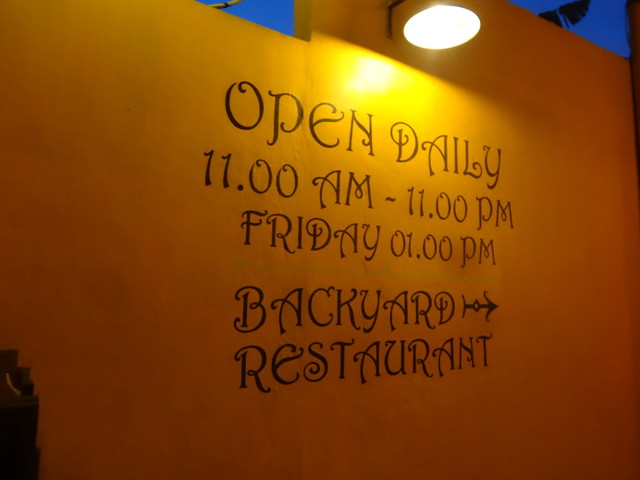 OPEN DAILY
11.00 AM - 11.00 PM
FRIDAY 01.00 PM
BACKYARD
RESTAURANT